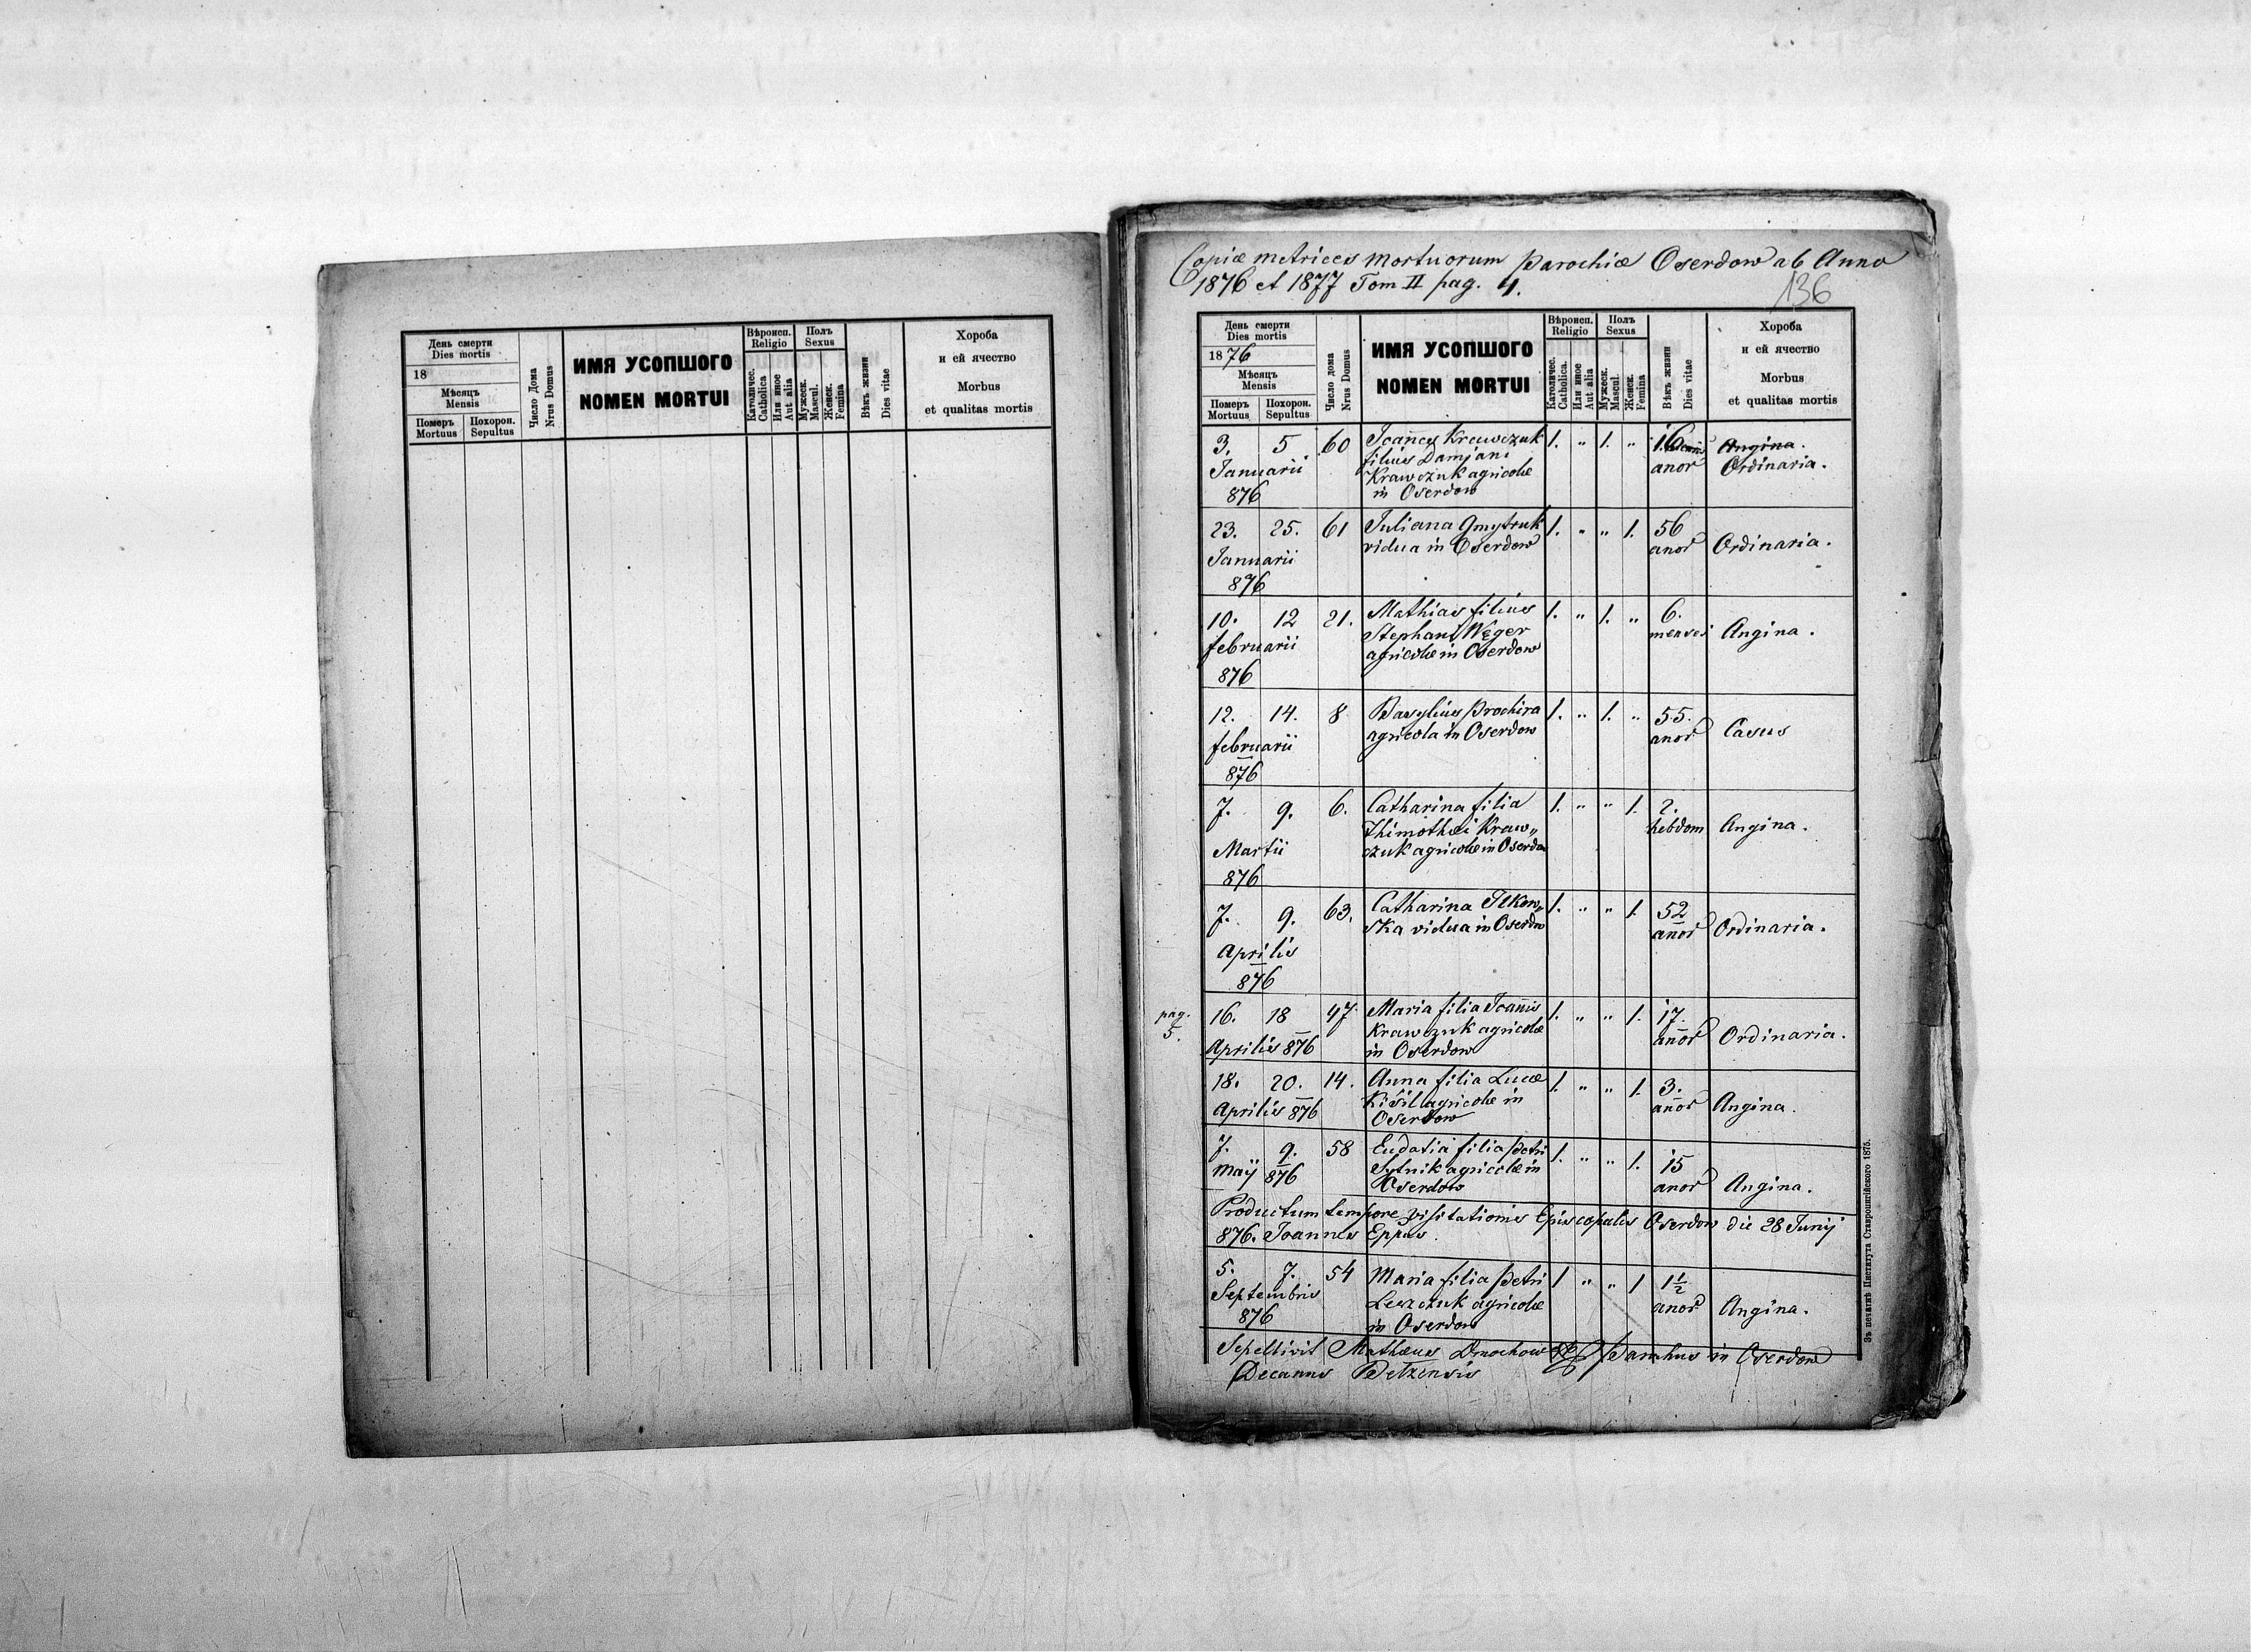 День смерти
Dies mortis
18
Мѣсяцъ
Mensis
Померъ
Mortuus
Похорон.
Sepultus
Число Дома
Nrus Domus
ИМЯ УСОПШОГО
NOMEN MORTUI
Вѣроисп.
Religio
Католичес.
Catholica
Или иное
Aut alia
Полъ
Sexus
Мужеск.
Mascul.
Женск.
Femina
Вѣкъ жизни
Dies vitae
Хороба
и ей ячество
Morbus
et qualitas mortis
Copiæ metrices mortuorum parochiæ Oserdow ab Anno
1876 et 1877 Tom II pag. 4.
136
День смерти
Dies mortis
1876
Мѣсяцъ
Mensis
Померъ
Mortuus
Похорон.
Sepultus
Число дома
Nrus Domus
ИМЯ УСОПШОГО
NOMEN MORTUI
Вѣроисп.
Religio
Католичес.
Catholica.
Или иное
Aut alia
Полъ
Sexus
Мужеск.
Mascul.
Женск.
Femina
Вѣкъ жизни
Dies vitae
Хороба
и ей ячество
Morbus
et qualitas mortis
3. 5 60 Joannes Krawczuk 1. " 1. " 16 Angina.
Januarii filius Damjani anor Ordinaria.
Krawczuk agricolæ
876 in Oserdow
23. 25. 61 Juliana Gmytruk 1. " " 1. 56
Januarii vidua in Oserdow anor Ordinaria.
876
10. 12 21. Mathias filius 1. " 1. " 6.
februarii Stephani Węger menses Angina.
agricolæ in Oserdow
876
12. 14. 8 Basylius Prochira 1. " 1. " 55.
februarii agricola in Oserdow anor Casus
876
7. 9. 6. Catharina filia 1. " " 1. 2.
Thimothæi Kraw„ hebdom Angina.
Martii czuk agricolæ in Oserdow
876
7. 9. 63. Catharina Ilkow„ 1. " " 1. 52
ska vidua in Oserdow anor Ordinaria.
Aprilis
876
pag.
5.
16. 18 47 Maria filia Joannis 1. " " 1. 17.
Krawczuk agricolæ anor Ordinaria.
Aprilis 876 in Oserdow
18. 20. 14. Anna filia Lucæ 1. " " 1. 3.
Aprilis 876 Kiśil agricolæ in anor Angina.
Oserdow
7. 9. 58 Eudotia filia Petri 1. " " 1. 15
Maij 876 Sytnik agricolæ in anor Angina.
Oserdow
Productum tempore visitationis Episcopalis Oserdow die 28 Junij
876. Joannes Eppus.
5. 7. 54 Maria filia Petri 1 " " 1 1½
Septembris Leszczuk agricolæ anor Angina.
876 in Oserdow
Sepellivit Mathæus Dmochowski Parochus in Oserdow
Decanus Belzensis
Зъ печатнѣ Института Ставропигійского 1875.